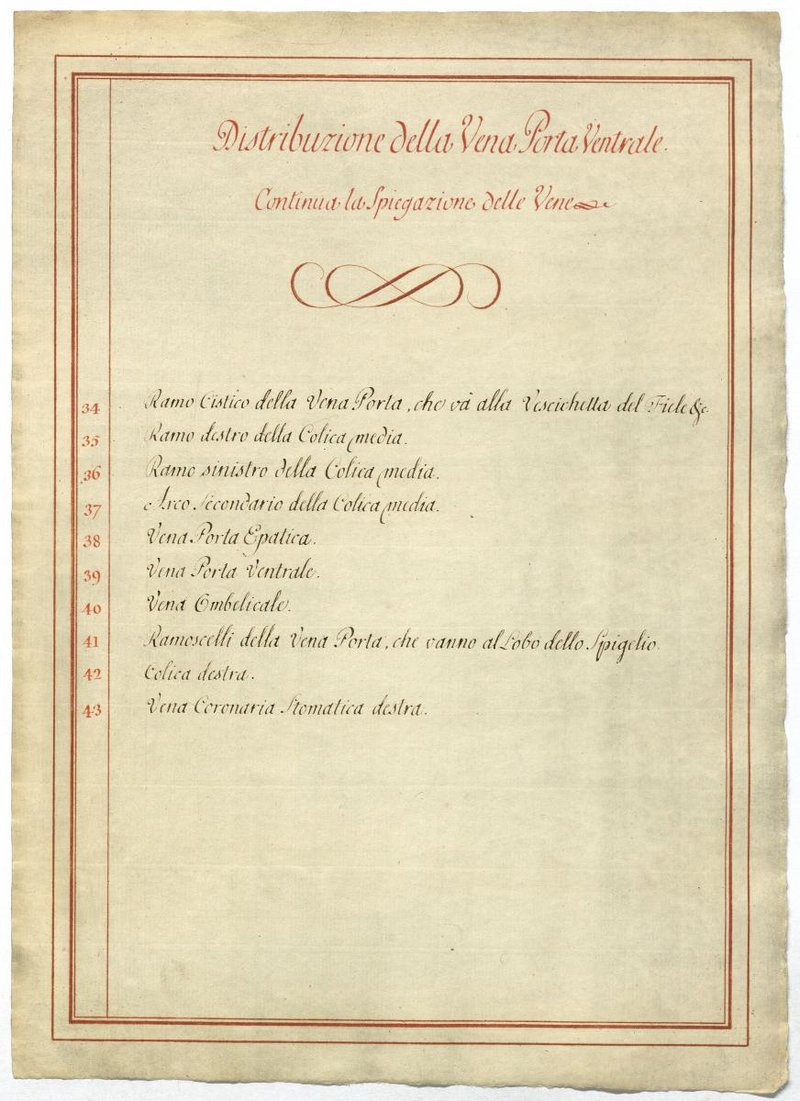 Distribuzione della Vena Porta Ventrale.
Continua la Spiegazione delle Vene
34 Ramo Cistico della Vena Porta, che và alla Vescichetta del Fiele &c.
35 Ramo destro della Colica media.
36 Ramo sinistro della Colica media.
37 Arco Secondario della Colica media.
38 Vena Porta Epatica.
39 Vena Porta Ventrale.
40 Vena Ombelicale.
41 Ramoscelli della Vena Porta, che vanno al Lobo dello Spigelio.
42 Colica destra.
43 Vena Coronaria Stomatica destra.